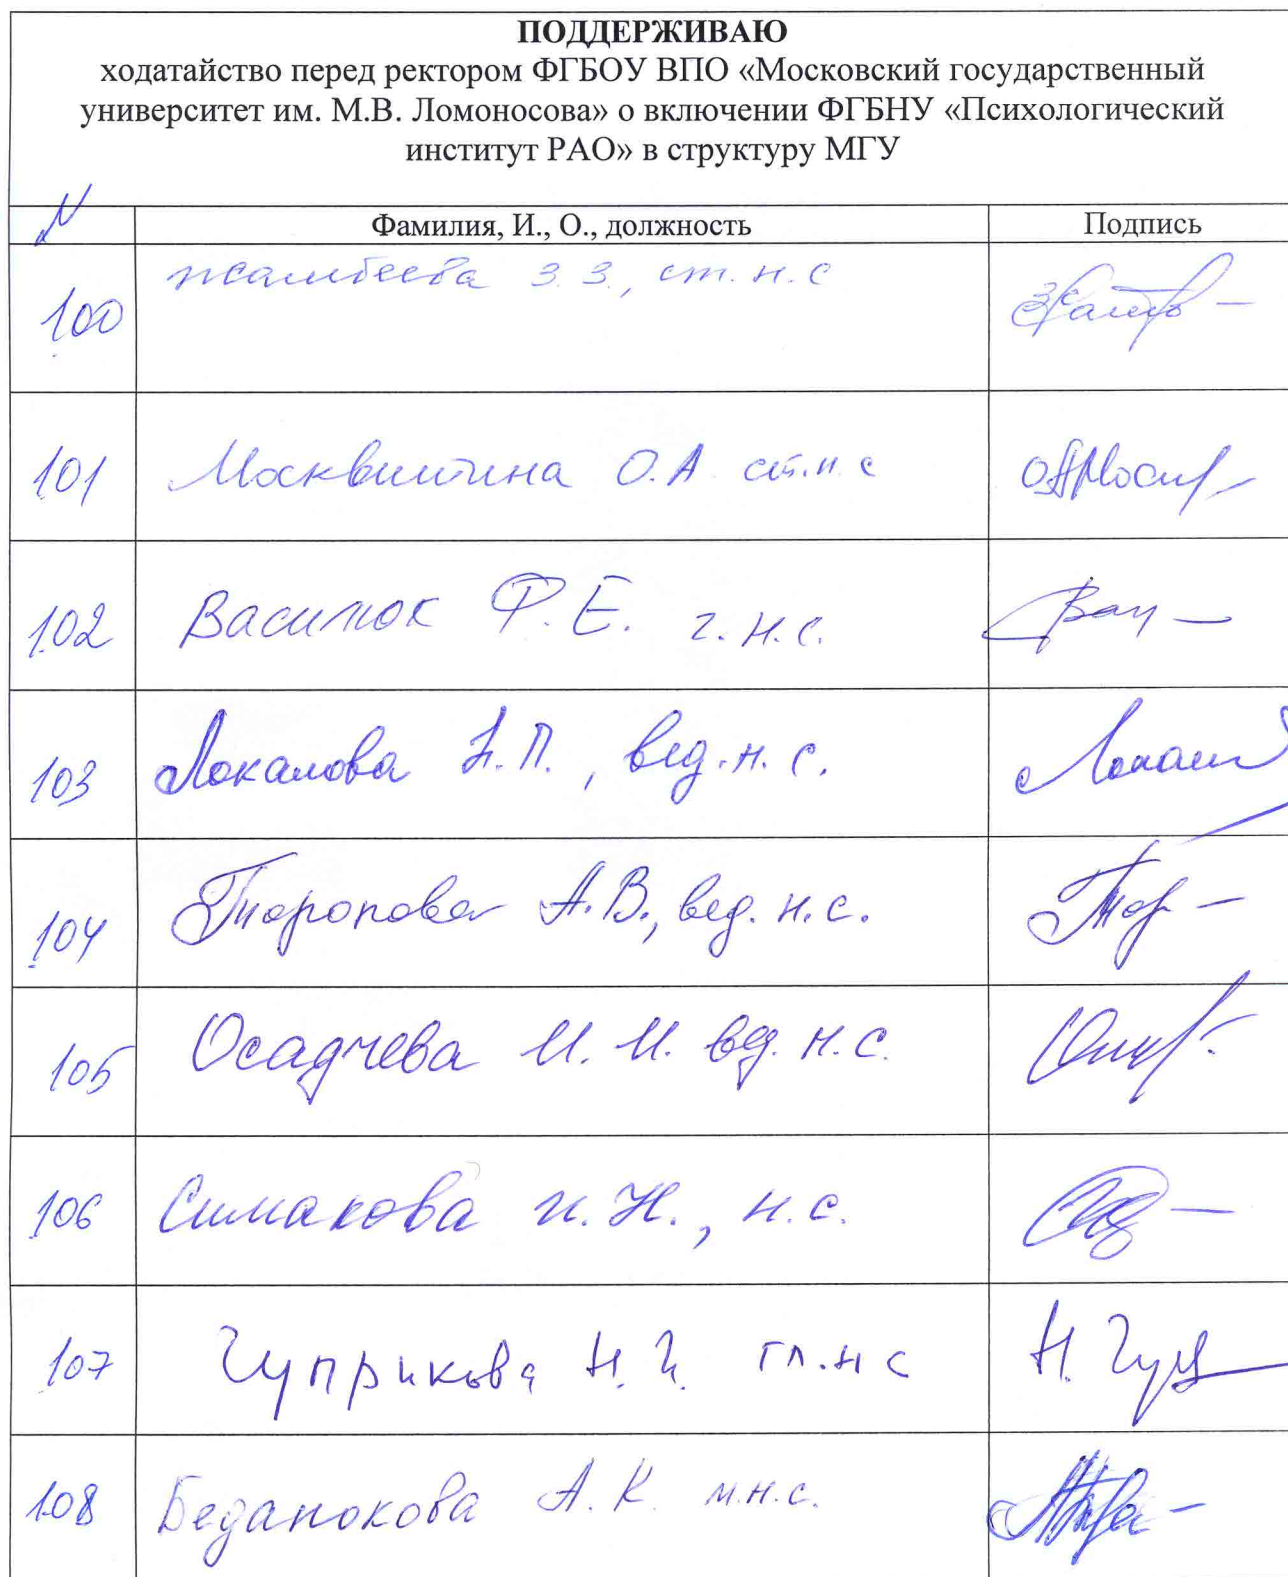 ПОДДЕРЖИВАЮ
ходатайство перед ректором ФГБОУ ВПО «Московский государственный
университет им. М.В. Ломоносова» о включении ФГБНУ «Психологический
институт РАО» в структуру МГУ
N Фамилия, И., О., должность Подпись
100 З. З., ст. н. с
101 Москвитина О. А ст. н. с
102 Василюк Ф. Е. г. н. с.
103 Локалова Н. П., вед. н. с.
104 Торопова А. В., вед. н. с.
105 Осадчева И. И. вед. н. с.
106 Симакова И. Н., н. с.
107 Чуприкова Н. И. гл. н с Н. Чупр
108 Беданокова А. К. м. н. с.